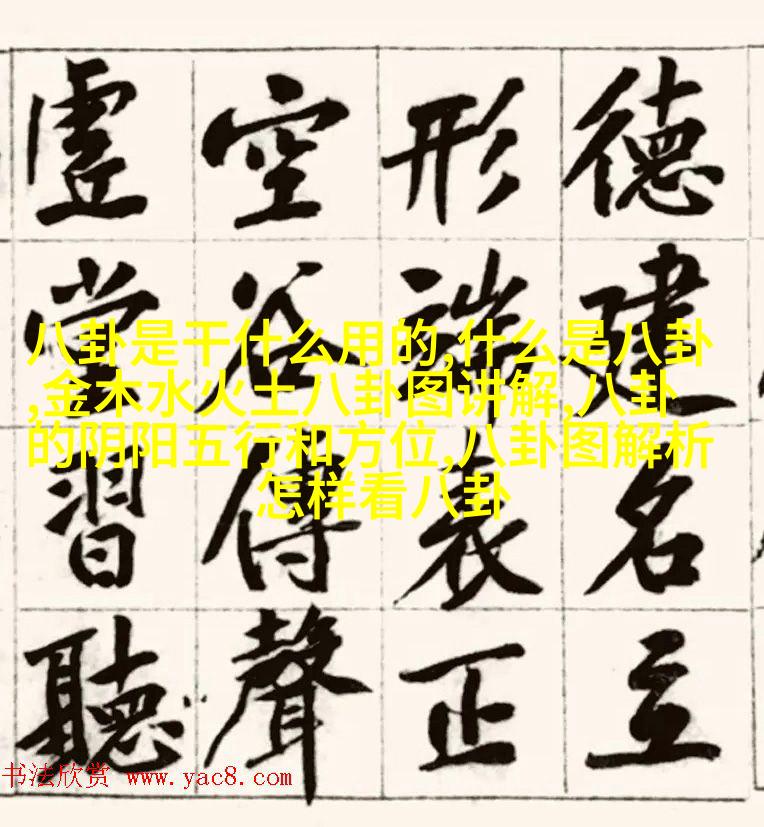 德建名立
形端表正
空谷傳聲
虛堂習聽
八卦是干什么用的,什么是八卦
,金木水火土八卦图讲解,八卦
的阴阳五行和方位,八卦图解析
怎样看八卦
书法欣赏 www.yac8.com